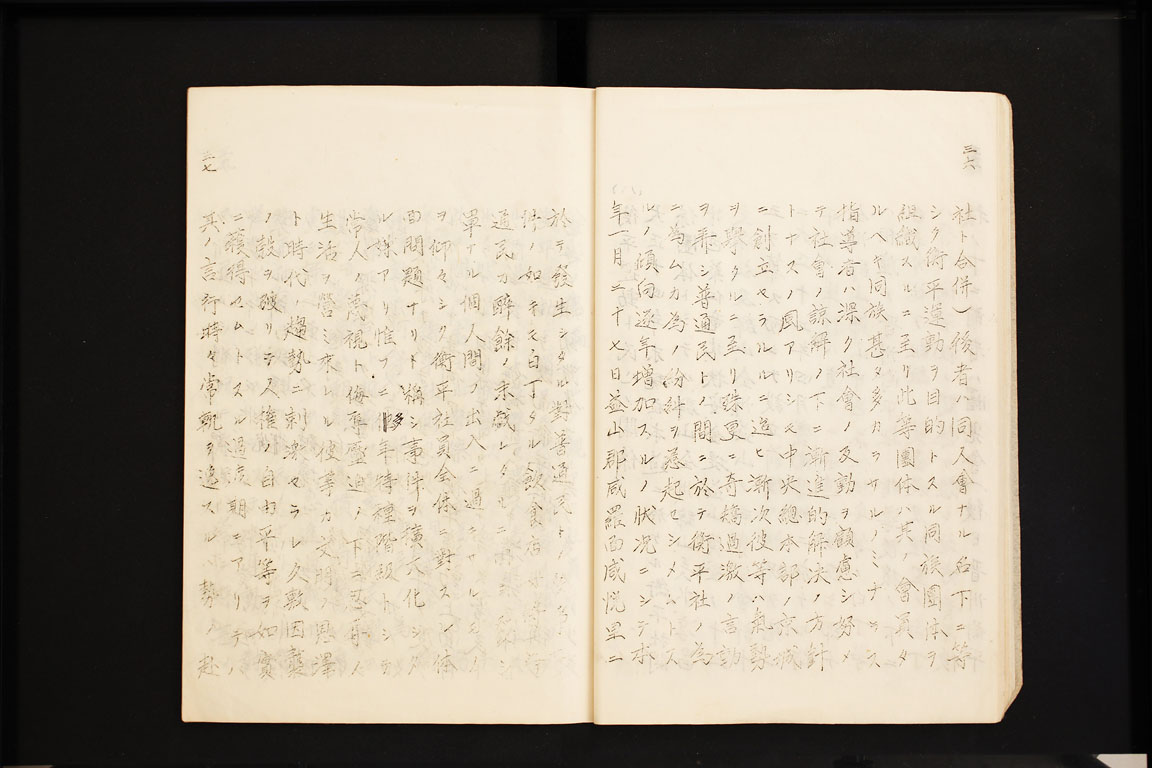 三六
社ト合併）後者ハ同人會ナル名下ニ等
シク衡平運動ヲ目的トスル同族團体ヲ
組識スルニ至リ此等團体ハ其ノ會員タ
ルヘキ同族甚タ多カラサルノミナラス
指導者ハ深ク社會ノ反動ヲ顧慮シ努メ
テ社會ノ諒解ノ下ニ漸進的解决ノ方針
トナスノ風アリシモ中央總本部ノ京城
ニ創立セラルルニ逭ヒ漸次彼等ハ氣勢
ヲ擧クルニ至リ殊更ニ奇矯過激ノ言動
ヲ弄シ普通民トノ間ニ於テ衡平社ノ為
ニ為ムカ為ノ紛糾ヲ惹起セシメムトス
ルノ傾向逐年増加スルノ狀况ニシテ本
年一月二十七日益山郡咸羅面咸悅里ニ
三七
於テ發生シタル對普通民トノ
件ノ如キモ白丁タル飲食店
通民カ醉餘ノ末戯レタルニ
單ナル個人間ノ出入ニ過キサルモノ
ヲ仰々シク衡平社員全体ニ對スル一体
面問題ナリト稱シ事件ヲ擴大化シタ
ル嫌アリ惟フニ多年特種階級トシテ
常人ノ蔑視ト侮辱壓迫ノ下ニ忍辱ノ
生活ヲ營ミ來レル彼等カ文明ノ恩澤
ト時代ノ趨勢ニ刺激セラレ久敷因襲
ノ殼ヲ破リテ人権ノ自由平等ヲ如實
ニ獲得セムトスル過度期ニアリテハ
其ノ言行時々常軌ヲ逸スル勢ノ赴